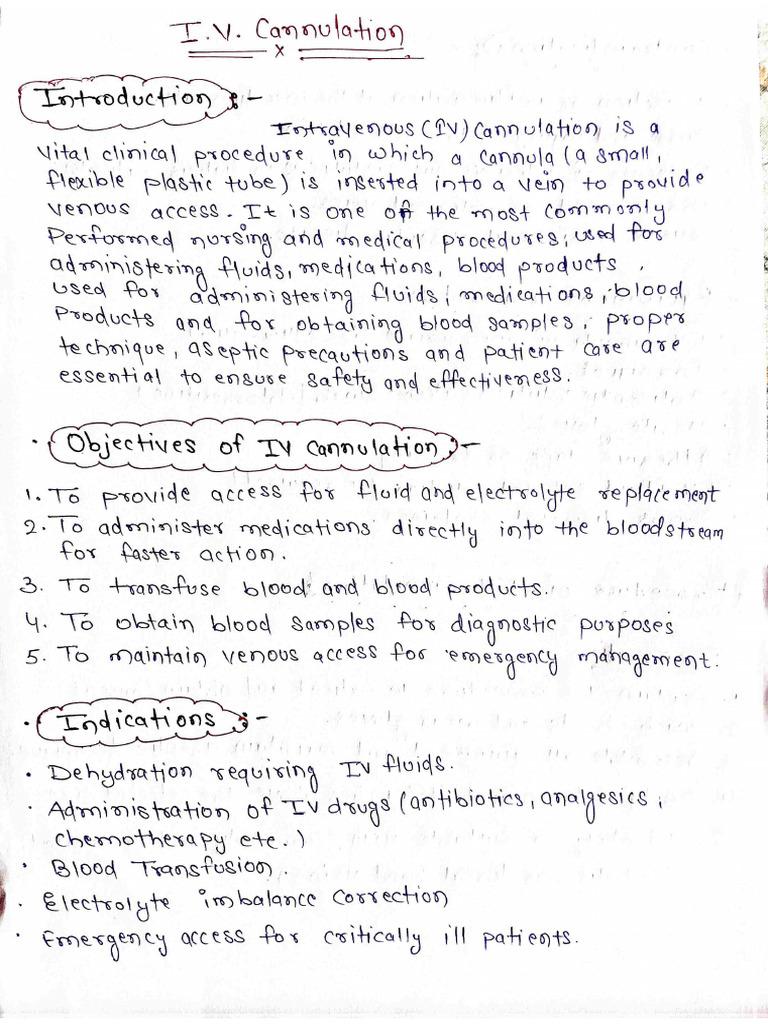 I.V. Cannulation
x
Introduction :-
Intravenous (IV) Cannulation is a
vital clinical procedure in which a cannula (a small,
flexible plastic tube) is inserted into a vein to provide
venous access. It is one of the most commonly
Performed nursing and medical procedures, used for
administering fluids, medications, blood products,
used for administering fluids, medications, blood
Products and for obtaining blood samples, proper
technique, aseptic precautions and patient care are
essential to ensure safety and effectiveness.
· Objectives of IV Cannulation :-
1. To provide access for fluid and electrolyte replacement
2. To administer medications directly into the bloodstream
for faster action.
3. To transfuse blood and blood products.
4. To obtain blood samples for diagnostic purposes
5. To maintain venous access for emergency management.
· Indications :-
· Dehydration requiring IV fluids.
· Administration of IV drugs (antibiotics, analgesics,
chemotherapy etc.)
· Blood Transfusion.
· Electrolyte imbalance correction
· Emergency access for critically ill patients.